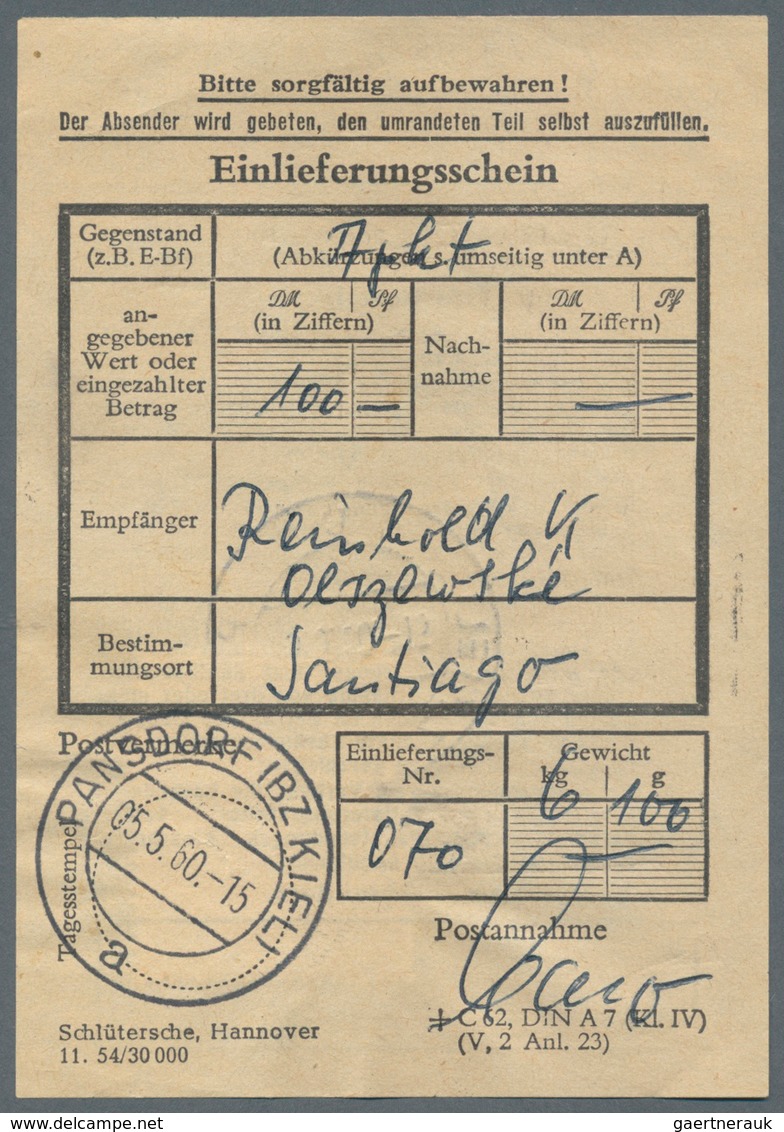 Bitte sorgfältig aufbewahren!
Der Absender wird gebeten, den umrandeten Teil selbst auszufüllen.
Einlieferungsschein
Gegenstand
(z.B. E-Bf)
(Abkürzungen s. umseitig unter A)
an-
gegebener
Wert oder
eingezahlter
Betrag
DM Pf
(in Ziffern)
100 —
Nach-
nahme
DM Pf
(in Ziffern)
—
Empfänger
Reinhold
Olszewski
Bestim-
mungsort
Santiago
Postvermerke
Tagesstempel
PANSDORF (BZ KIEL)
05.5.60.-15
a
Einlieferungs-
Nr.
070
Gewicht
kg g
6 100
Postannahme
C 62, DIN A 7 (Kl. IV)
(V, 2 Anl. 23)
Schlütersche, Hannover
11. 54/30 000
www.delcampe.net
gaertnerauk